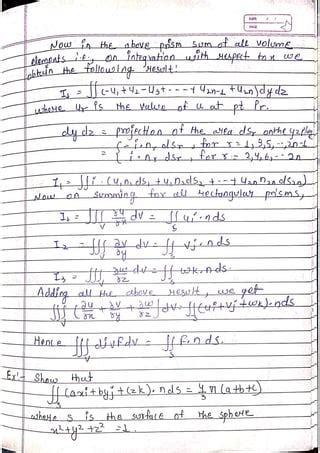 Now in the above prism sum of all volume
elements i.e., on integration with respect to x we
obtain the following result:
I₁ = ∬(-u₁+u₂-u₃+----+ u₂ₙ₋₁ + u₂ₙ) dy dz
where uᵣ is the value of u at pt Pᵣ.
dy dz = projection of the area dsᵣ on the yz plane
= { -i·nᵣ dsᵣ, for r = 1,3,5,--2n-1
i·nᵣ dsᵣ, for r = 2,4,6,--2n
I₁ = ∬ i·(u₁n₁ds₁ + u₂n₂ds₂ +--+ u₂ₙn₂ₙds₂ₙ)
Now on summing for all rectangular prisms,
I₁ = ∭_V ∂u/∂x dv = ∬_S u i·n ds
I₂ = ∭_V ∂v/∂y dv = ∬_S v j·n ds
I₃ = ∭_V ∂w/∂z dv = ∬_S w k·n ds
Adding all the above result, we get
∭_V (∂u/∂x + ∂v/∂y + ∂w/∂z) dv = ∬_S (ui+vj+wk)·n ds
Hence ∭_V div F dv = ∬_S F·n ds.
Ex:- Show that
∬_S (axi + byj + czk)·n ds = 4/3 π (a+b+c)
where S is the surface of the sphere
x²+y²+z² = 1.